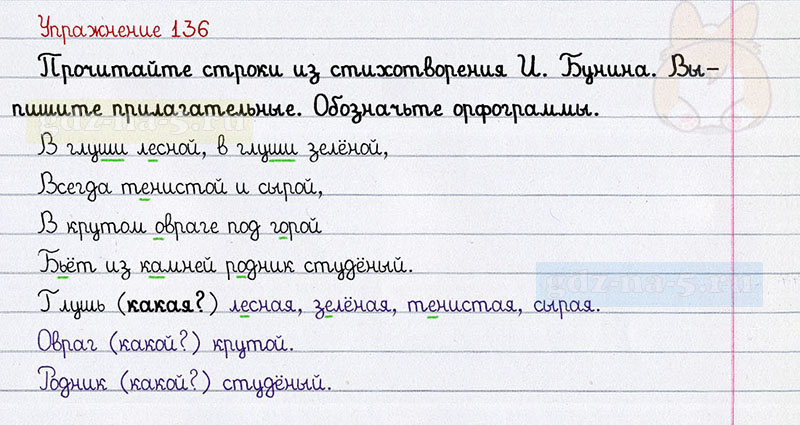 Упражнение 136
Прочитайте строки из стихотворения И. Бунина. Вы-
пишите прилагательные. Обозначьте орфограммы.
В глуши лесной, в глуши зелёной,
Всегда тенистой и сырой,
В крутом овраге под горой
Бьёт из камней родник студёный.
Глушь (какая?) лесная, зелёная, тенистая, сырая.
Овраг (какой?) крутой.
Родник (какой?) студёный.
gdz-na-5.ru
gdz-na-5.ru